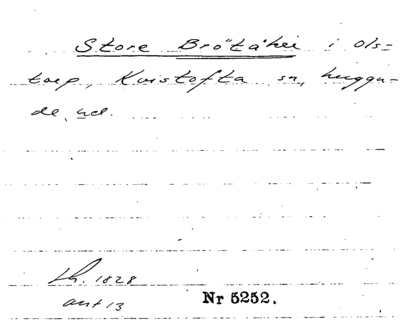 Store Brötåkei i Ols=
torp, Kvistofta sn, Luggu-
de hd.
Lh. 1828
akt 13
Nr 5252.